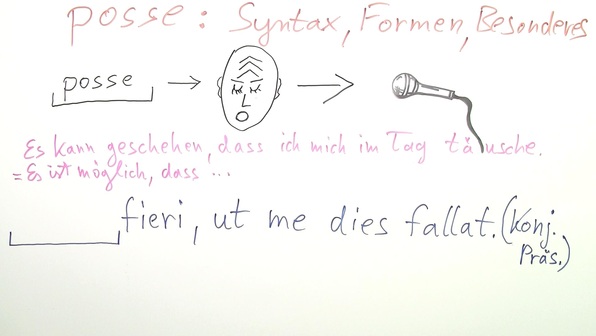 posse: Syntax, Formen, Besonderes
posse
Es kann geschehen, dass ich mich im Tag täusche.
= Es ist möglich, dass ...
fieri, ut me dies fallat. (Konj.
Präs.)